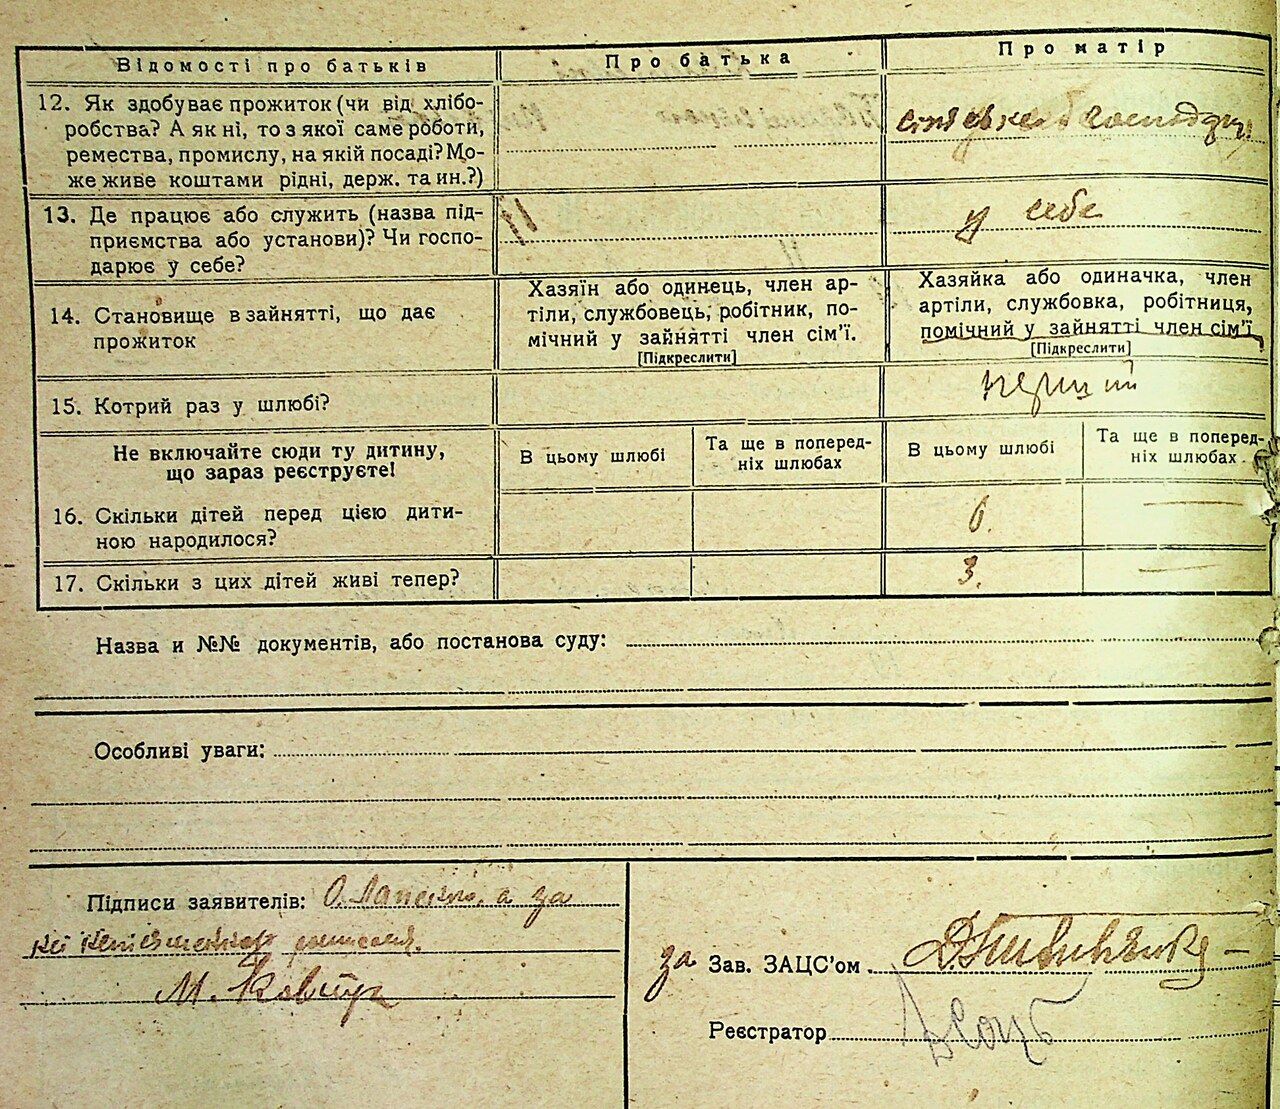 Відомості про батьків
Про батька
Про матір
12. Як здобуває прожиток (чи від хлібо-
робства? А як ні, то з якої саме роботи,
ремества, промислу, на якій посаді? Мо-
же живе коштами рідні, держ. та ин.?)
13. Де працює або служить (назва під-
приємства або установи)? Чи госпо-
дарює у себе?
у себе
14. Становище в зайнятті, що дає
прожиток
Хазяїн або одинець, член ар-
тіли, службовець, робітник, по-
мічний у зайнятті член сім'ї.
[Підкреслити]
Хазяйка або одиначка, член
артіли, службовка, робітниця,
помічний у зайнятті член сім'ї
[Підкреслити]
15. Котрий раз у шлюбі?
перший
Не включайте сюди ту дитину,
що зараз реєструєте!
В цьому шлюбі
Та ще в поперед-
ніх шлюбах
В цьому шлюбі
Та ще в поперед-
ніх шлюбах
16. Скільки дітей перед цією дити-
ною народилося?
6.
17. Скільки з цих дітей живі тепер?
3.
Назва и №№ документів, або постанова суду:
Особливі уваги:
Підписи заявителів: а за
М. Ковтун
за Зав. ЗАЦС'ом
Реєстратор